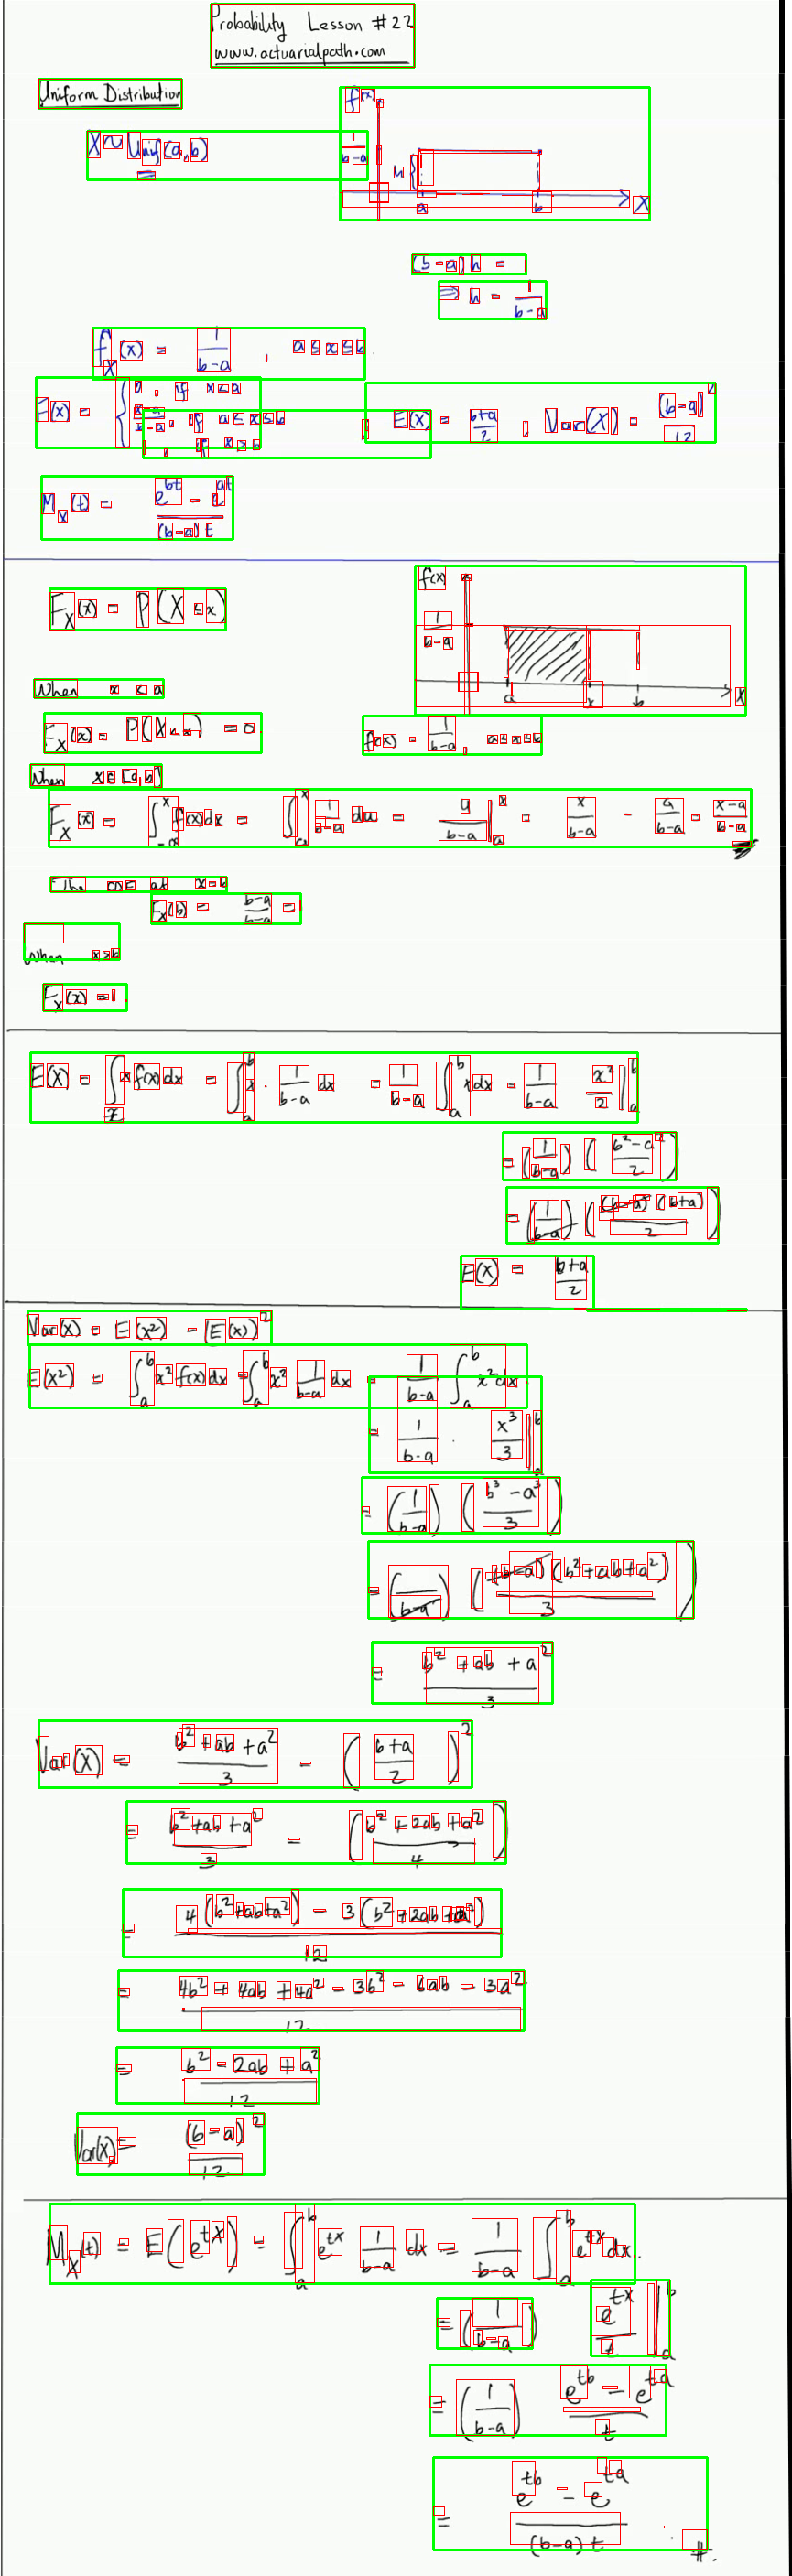 Probability Lesson #22
www.actuarialpath.com
Uniform Distribution
f(x)
X ~ Unif(a,b)
1/(b-a)
h {
a b X
(b-a) h = 1
⇒ h = 1/(b-a)
f_X(x) = 1/(b-a) , a ≤ x ≤ b.
F(x) = { 0, if x<a
(x-a)/(b-a), if a ≤ x ≤ b
1, if x > b
E(X) = (b+a)/2 , Var(X) = (b-a)^2/12
M_X(t) = (e^{bt} - e^{at})/((b-a)t)
f(x)
F_X(x) = P(X ≤ x)
1/(b-a)
a x b X
When x < a
F_X(x) = P(X ≤ x) = 0
f(x) = 1/(b-a), a≤x≤b
When x ∈ [a,b]
F_X(x) = ∫_{-∞}^{x} f(x)dx = ∫_a^x 1/(b-a) du = u/(b-a) |_a^x = x/(b-a) - a/(b-a) = (x-a)/(b-a)
The CDF at x=b
F_X(b) = (b-a)/(b-a) = 1
When x>b
F_X(x) = 1.
E(X) = ∫_x x f(x) dx = ∫_a^b x · 1/(b-a) dx = 1/(b-a) ∫_a^b x dx = 1/(b-a) x^2/2 |_a^b
= (1/(b-a)) ((b^2-a^2)/2)
= (1/(b-a)) ((b-a)(b+a)/2)
E(X) = (b+a)/2
Var(X) = E(x^2) - (E(x))^2
E(x^2) = ∫_a^b x^2 f(x) dx = ∫_a^b x^2 1/(b-a) dx = 1/(b-a) ∫_a^b x^2 dx
= 1/(b-a) · x^3/3 |_a^b
= (1/(b-a)) ((b^3 - a^3)/3)
= (1/(b-a)) ((b-a)(b^2+ab+a^2)/3)
= (b^2 + ab + a^2)/3
Var(X) = (b^2 + ab + a^2)/3 - ((b+a)/2)^2
= (b^2+ab+a^2)/3 - ((b^2 + 2ab + a^2)/4)
= (4(b^2+ab+a^2) - 3(b^2+2ab+a^2))/12
= (4b^2 + 4ab + 4a^2 - 3b^2 - 6ab - 3a^2)/12
= (b^2 - 2ab + a^2)/12
Var(X) = (b-a)^2/12
M_X(t) = E(e^{tX}) = ∫_a^b e^{tx} 1/(b-a) dx = 1/(b-a) ∫_a^b e^{tx} dx.
= (1/(b-a)) e^{tx}/t |_a^b
= (1/(b-a)) (e^{tb} - e^{ta})/t
= (e^{tb} - e^{ta})/((b-a)t) #.